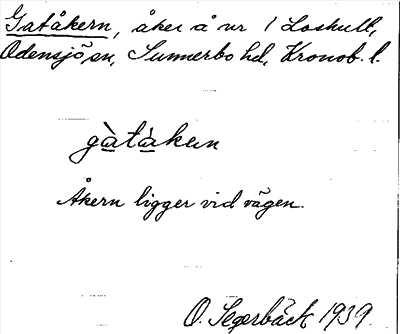 Gatåkern, åker å nr 1 Loshult,
Odensjö sn, Sunnerbo hd, Kronob. l.
gàtàkun
Åkern ligger vid vägen.
O. Segerbäck 1939.